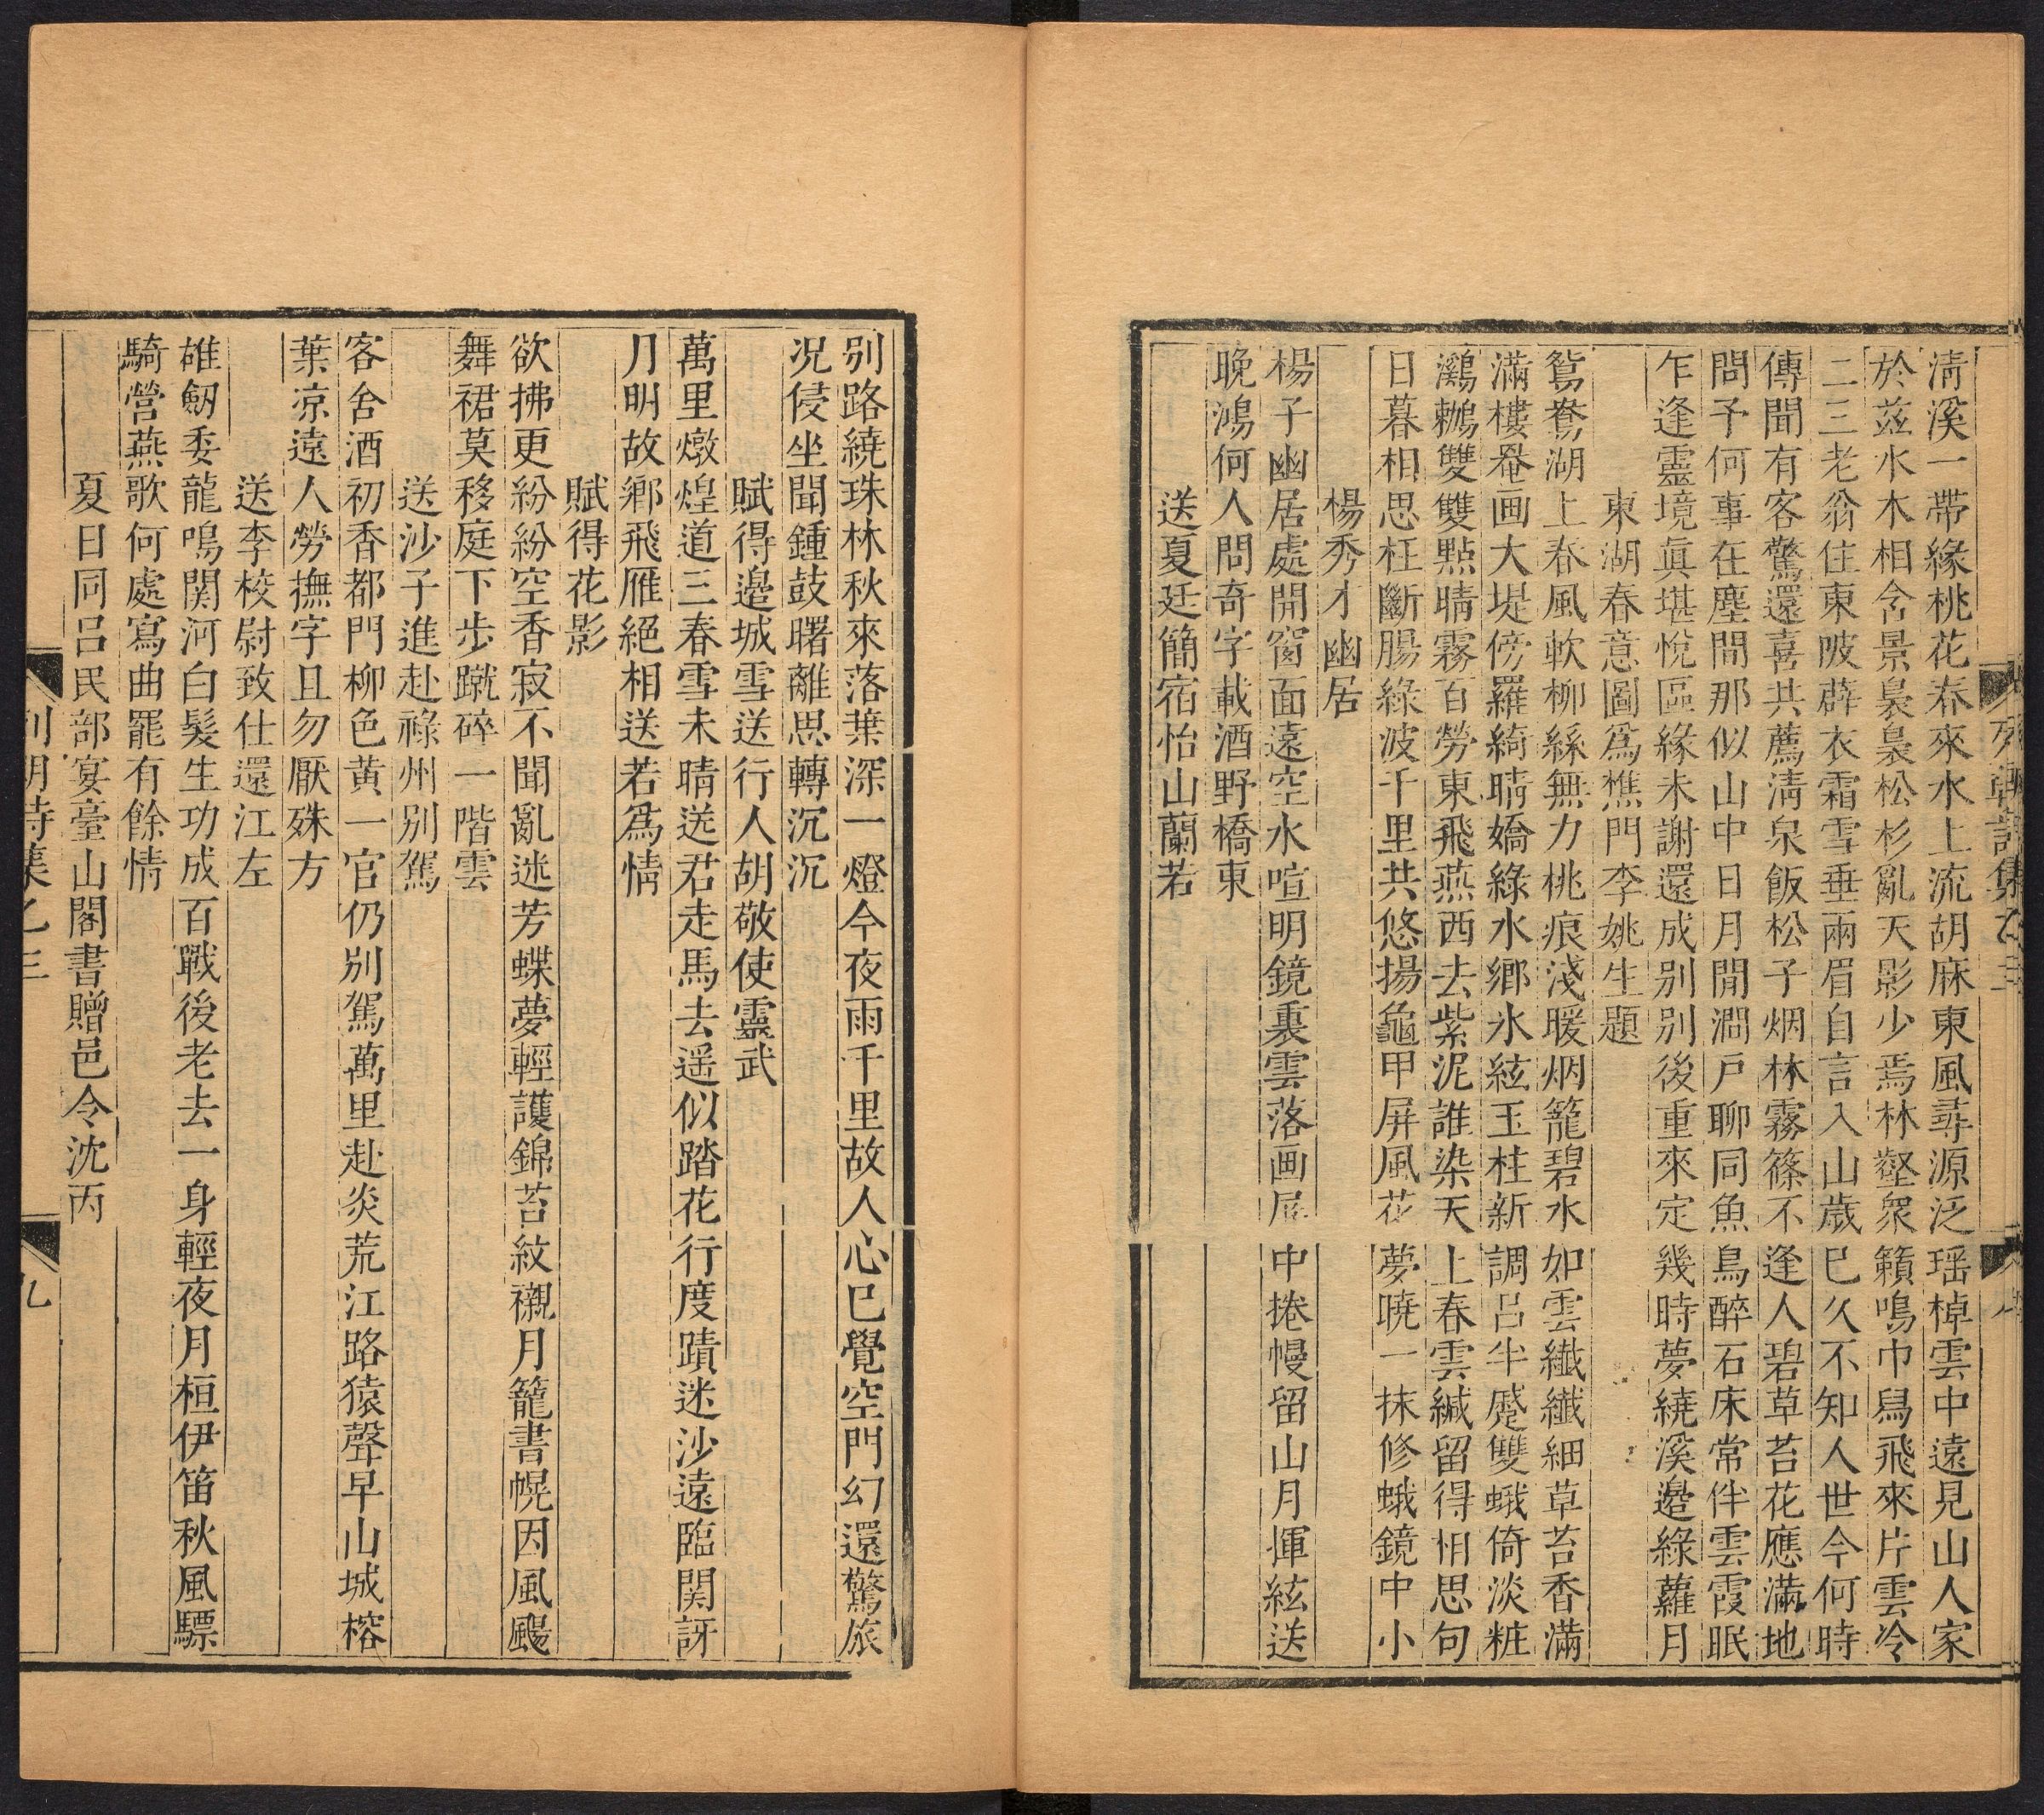 清溪一帶緣桃花春來水上流胡麻東風尋源泛瑶棹雲中遠見山人家
於茲水木相含景裊裊松杉亂天影少焉林壑衆籟鳴巾舄飛來片雲冷
二三老翁住東陂薜衣霜雪垂兩眉自言入山歲已久不知人世今何時
傳聞有客驚還喜共薦清泉飯松子烟林霧篠不逢人碧草苔花應滿地
問予何事在塵間那似山中日月閒澗戸聊同魚鳥醉石床常伴雲霞眠
乍逢靈境眞堪悅區緣未謝還成別別後重來定幾時夢繞溪邊綠蘿月
東湖春意圖爲樵門李姚生題
鴛鴦湖上春風軟柳絲無力桃痕淺暖烟籠碧水如雲纖纖細草苔香滿
滿樓罨画大堤傍羅綺晴嬌綠水鄉水絃玉柱新調呂半蹙雙蛾倚淡粧
鸂鶒雙雙點晴霧百勞東飛燕西去紫泥誰染天上春雲緘留得相思句
日暮相思枉斷腸綠波千里共悠揚龜甲屏風花夢暁一抹修蛾鏡中小
楊秀才幽居
楊子幽居處開窗面遠空水喧明鏡裏雲落画屏中捲幔留山月揮絃送
晚鴻何人問奇字載酒野橋東
送夏廷簡宿怡山蘭若
別路繞珠林秋來落葉深一燈今夜雨千里故人心已覺空門幻還驚旅
况侵坐聞鍾鼓曙離思轉沉沉
賦得邊城雪送行人胡敬使靈武
萬里燉煌道三春雪未晴送君走馬去遥似踏花行度蹟迷沙遠臨関訝
月明故鄉飛雁絕相送若爲情
賦得花影
欲拂更紛紛空香寂不聞亂迷芳蝶夢輕護錦苔紋襯月籠書幌因風颺
舞裙莫移庭下步蹴碎一階雲
送沙子進赴祿州别駕
客舍酒初香都門柳色黄一官仍別駕萬里赴炎荒江路猿聲早山城榕
葉凉遠人勞撫字且勿厭殊方
送李校尉致仕還江左
雄劒委龍鳴関河白髮生功成百戰後老去一身輕夜月桓伊笛秋風驃
騎營燕歌何處寫曲罷有餘情
夏日同呂民部宴臺山閣書贈邑令沈丙
列朝詩集乙三
九